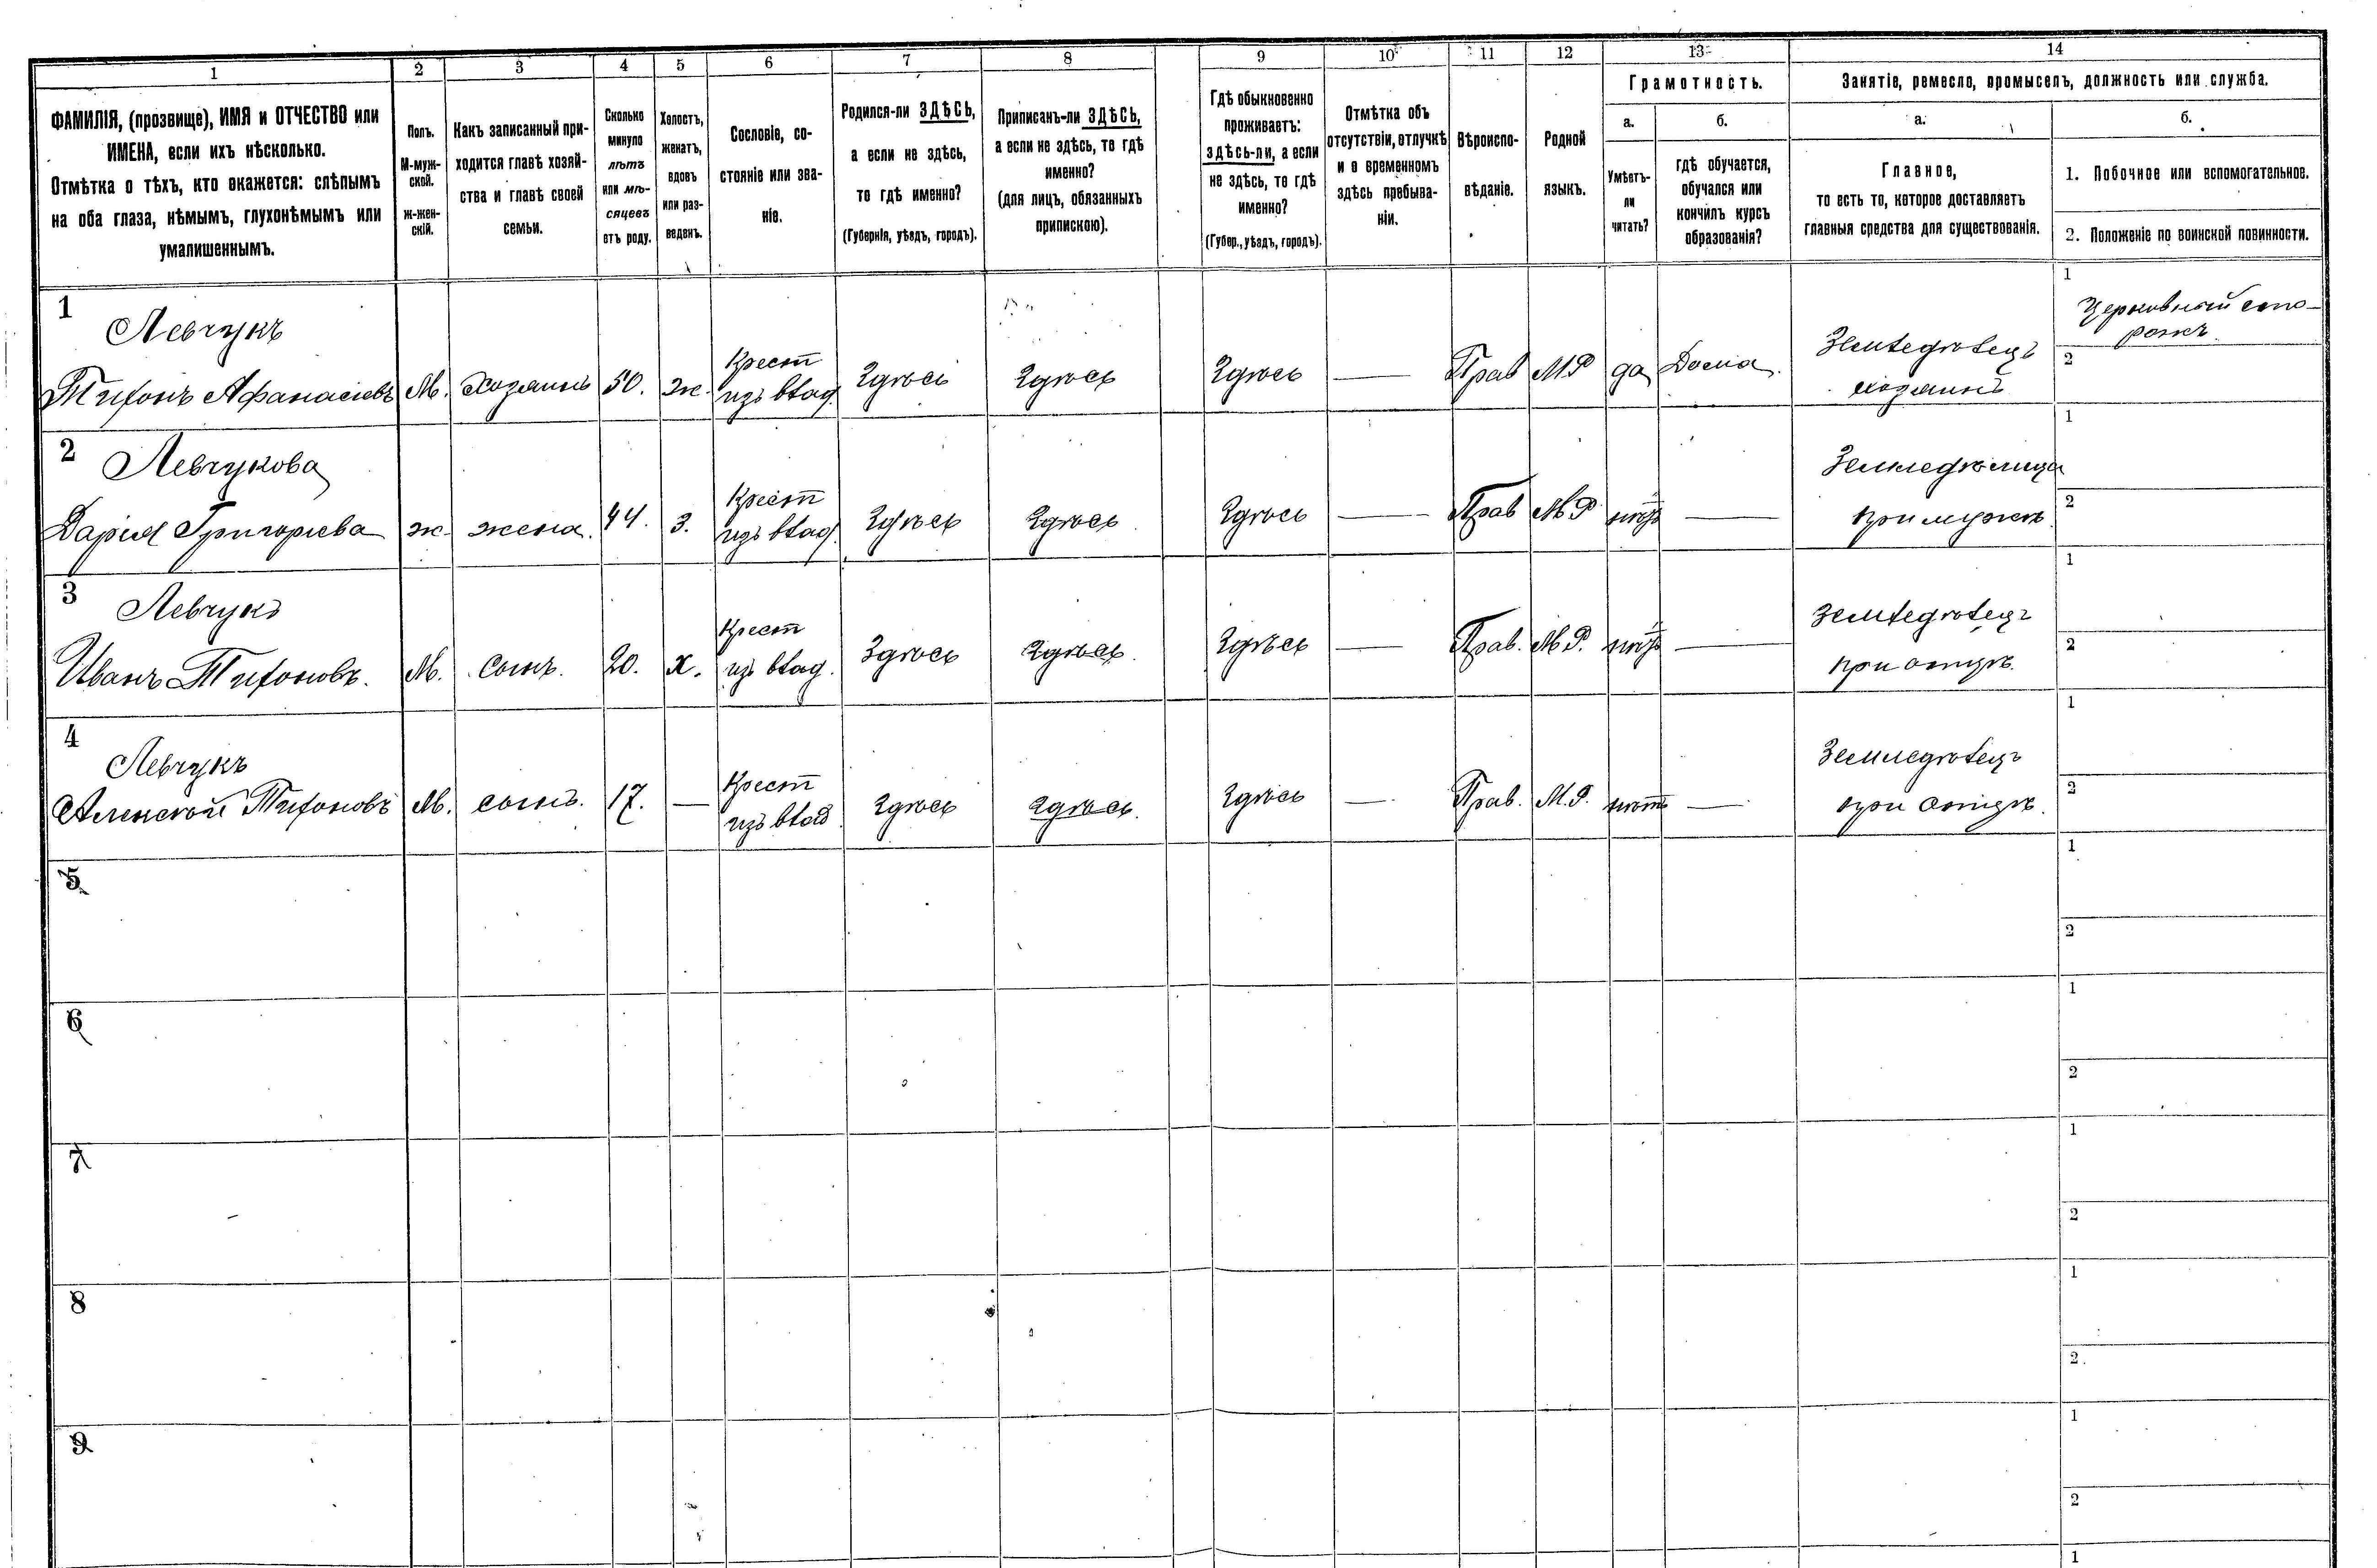 1 2 3 4 5 6 7 8 9 10 11 12 13 14
ФАМИЛІЯ, (прозвище), ИМЯ и ОТЧЕСТВО или
ИМЕНА, если ихъ нѣсколько.
Отмѣтка о тѣхъ, кто окажется: слѣпымъ
на оба глаза, нѣмымъ, глухонѣмымъ или
умалишеннымъ.
Полъ.
М-муж-
ской.
ж-жен-
скій.
Какъ записанный при-
ходится главѣ хозяй-
ства и главѣ своей
семьи.
Сколько
минуло
лѣтъ
или мѣ-
сяцевъ
отъ роду.
Холостъ,
женатъ,
вдовъ
или раз-
веденъ.
Сословіе, со-
стояніе или зва-
ніе.
Родился-ли ЗДѢСЬ,
а если не здѣсь,
то гдѣ именно?
(Губернія, уѣздъ, городъ).
Приписанъ-ли ЗДѢСЬ,
а если не здѣсь, то гдѣ
именно?
(для лицъ, обязанныхъ
припискою).
Гдѣ обыкновенно
проживаетъ:
здѣсь-ли, а если
не здѣсь, то гдѣ
именно?
(Губер., уѣздъ, городъ).
Отмѣтка объ
отсутствіи, отлучкѣ
и о временномъ
здѣсь пребыва-
ніи.
Вѣроиспо-
вѣданіе.
Родной
языкъ.
Грамотность.
а.
Умѣетъ-
ли
читать?
б.
гдѣ обучается,
обучался или
кончилъ курсъ
образованія?
Занятіе, ремесло, промыселъ, должность или служба.
а.
Главное,
то есть то, которое доставляетъ
главныя средства для существованія.
б.
1. Побочное или вспомогательное.
2. Положеніе по воинской повинности.
1
Левчукъ
Тихонъ Афанасіевъ
М.
хозяинъ
50.
ж.
Крест
изъ влад.
Здѣсь
Здѣсь
Здѣсь
—
Прав
М Р
да
Дома.
Земледѣлецъ
хозяинъ
1
Церковный сто-
рожъ.
2
2
Левчукова
Дарія Григоріева
ж.
жена.
44.
з.
Крест
изъ влад.
Здѣсь
Здѣсь.
Здѣсь
—
Прав
М Р
нѣтъ
—
Земледѣлица
при мужѣ.
1
2
3
Левчукъ
Иванъ Тихоновъ.
М.
сынъ.
20.
х.
Крест
изъ влад.
Здѣсь
Здѣсь.
Здѣсь
—
Прав.
М Р.
нѣтъ
—
Земледѣлецъ
при отцѣ.
1
2
4
Левчукъ
Алексѣй Тихоновъ
М.
сынъ.
17.
—
Крест
изъ влад.
Здѣсь
Здѣсь.
Здѣсь
—
Прав.
М. Р.
нѣтъ
—
Земледѣлецъ
при отцѣ.
1
2
5
1
2
6
1
2
7
1
2
8
1
2
9
1
2
1